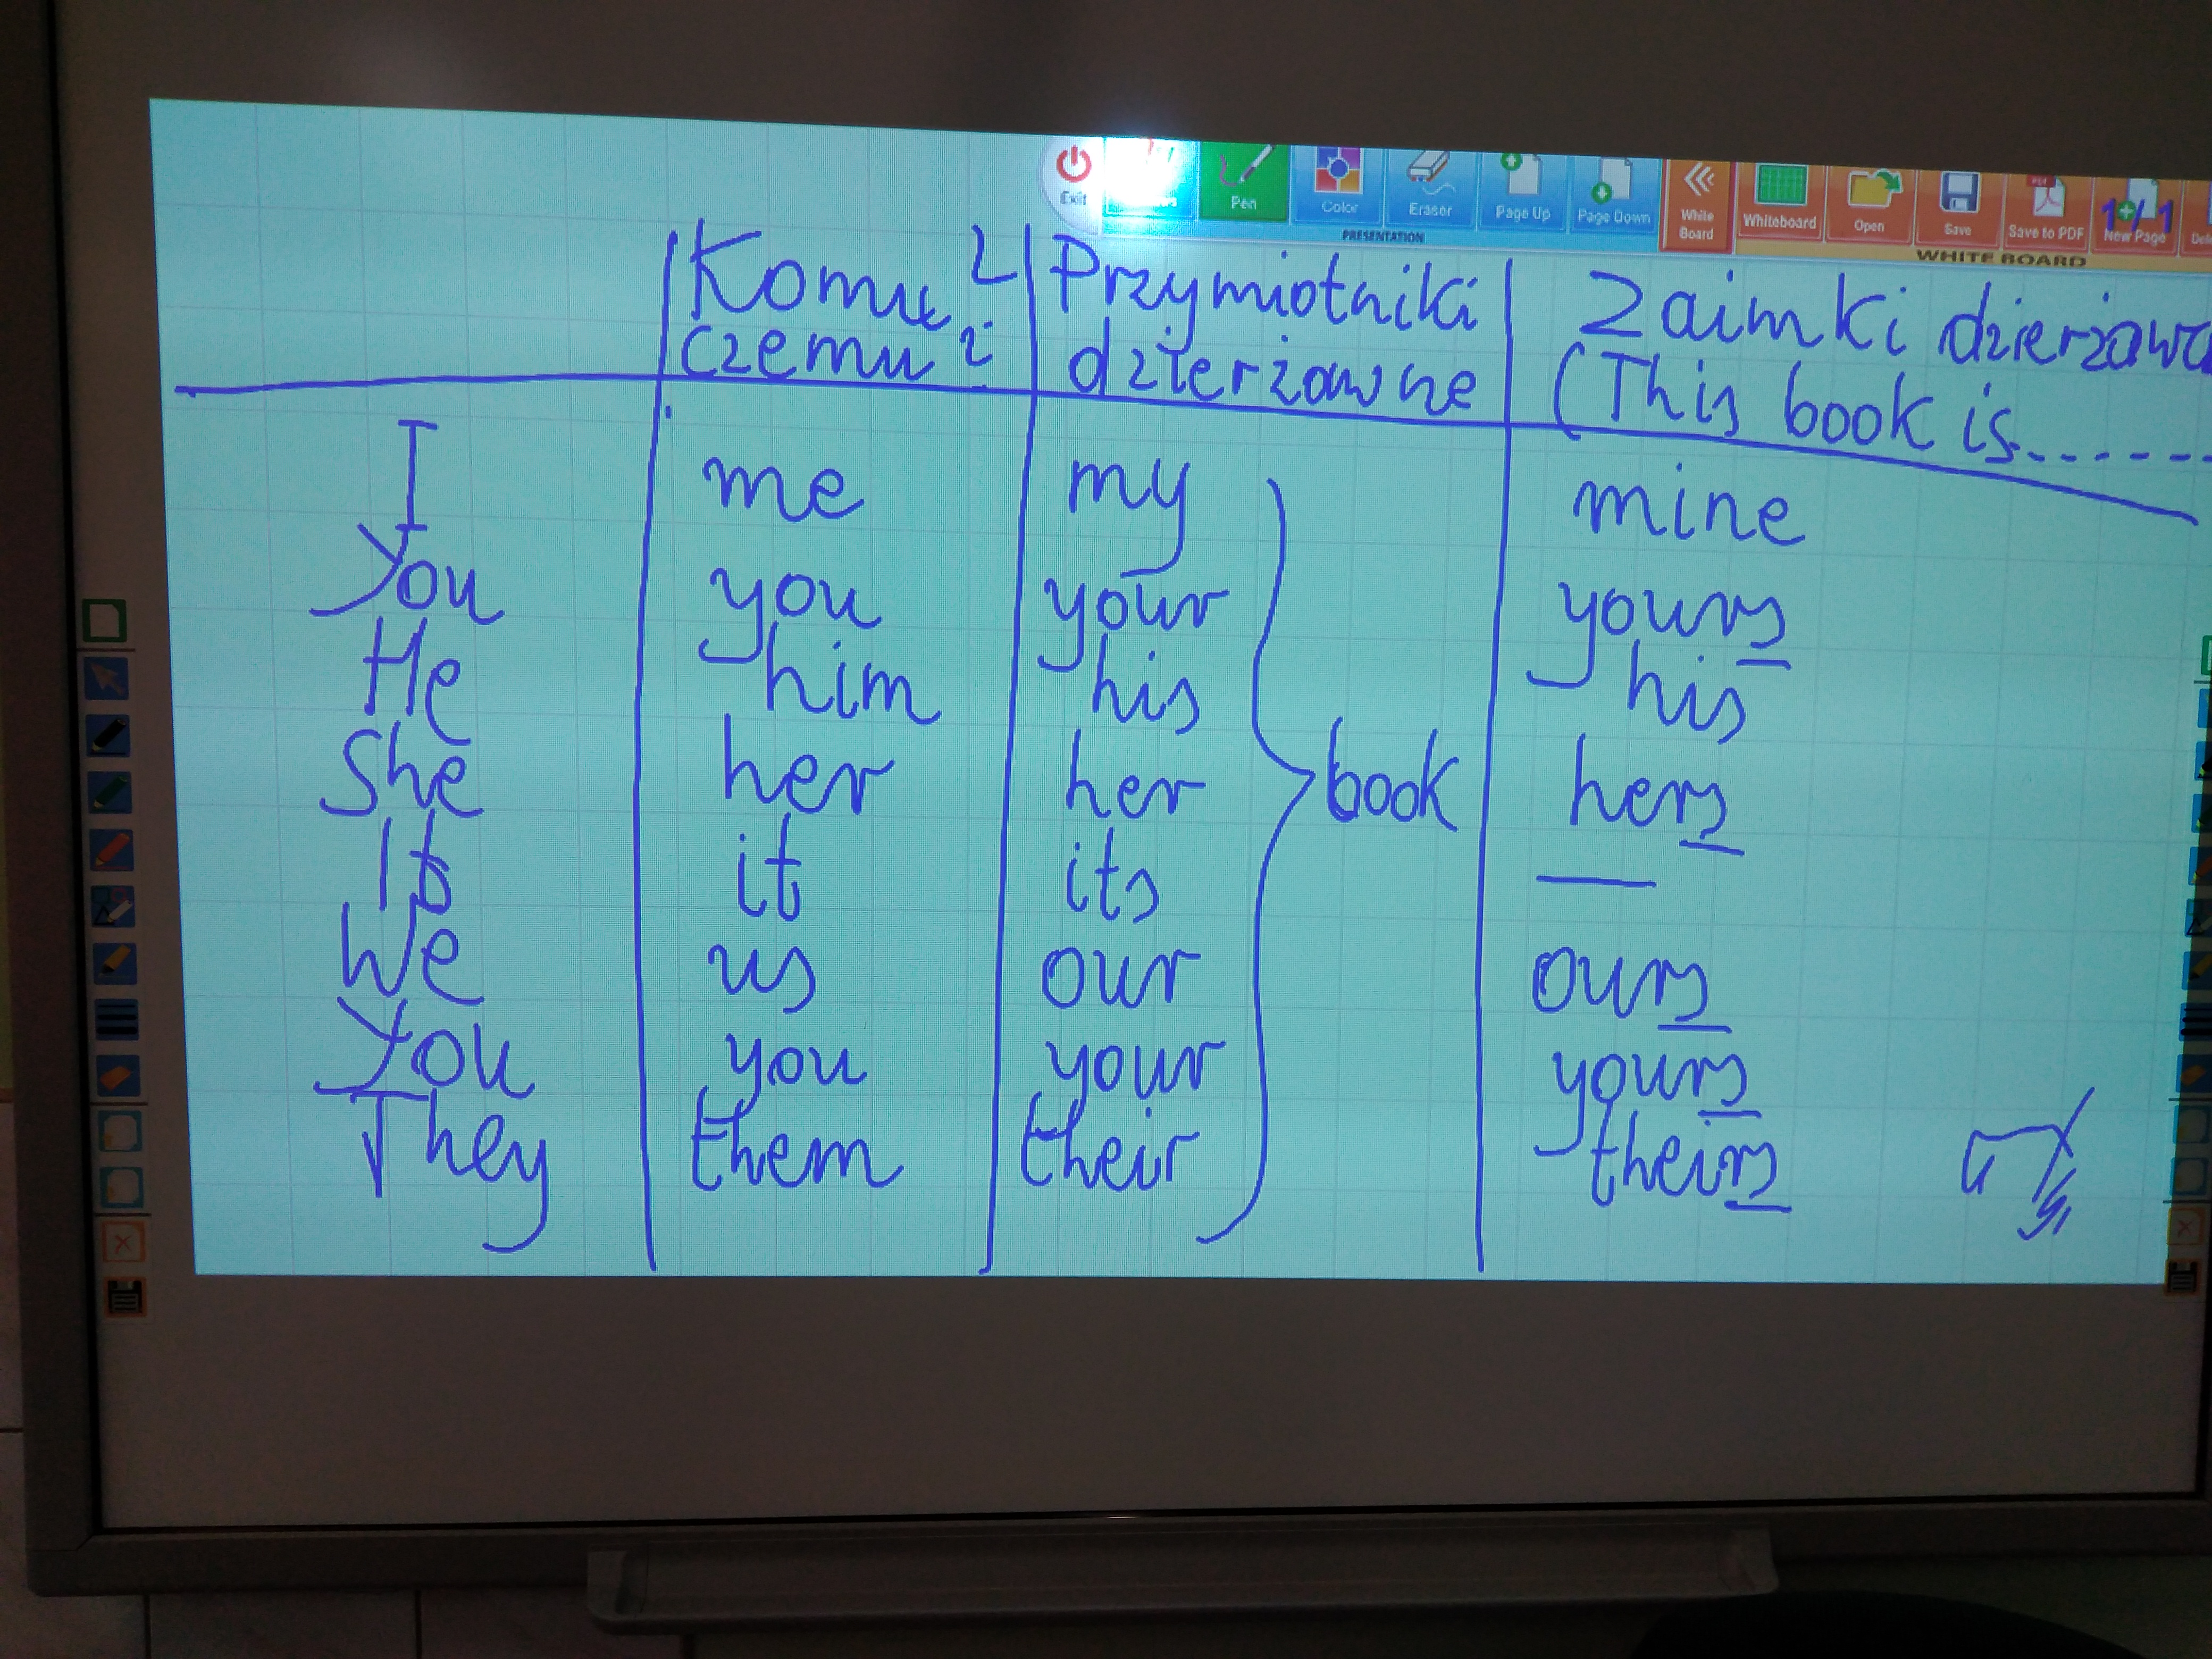 Exit Pen Color Eraser Page Up Page Down White Board Whiteboard Open Save Save to PDF New Page
1/1
PRESENTATION WHITE BOARD
Komu? Przymiotniki Zaimki
czemu? dzierżawne (This book is......
I me my mine
You you your yours
He him his his
She her her book hers
It it its —
We us our ours
You you your yours
They them their theirs